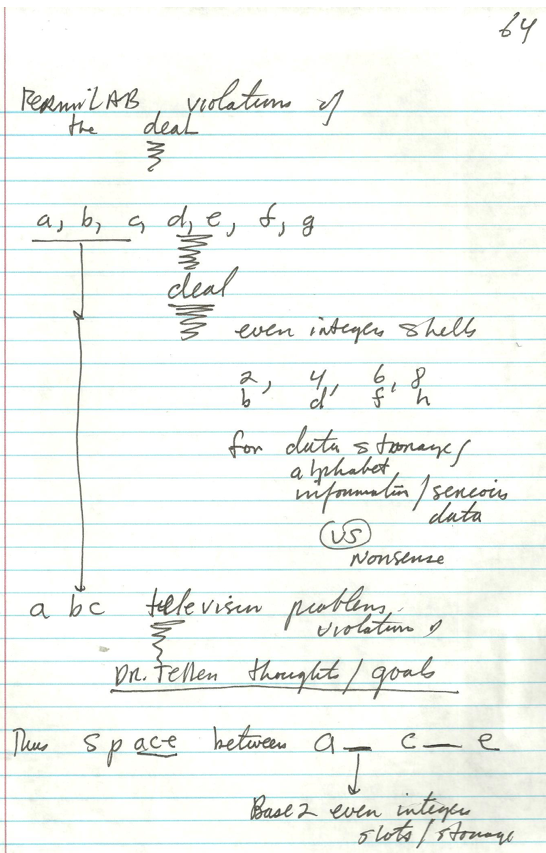 64
FERMILAB violations of
the deal
a, b, c, d, e, f, g
deal
even integer shells
2, 4, 6, 8
b d f h
for data storage/
alphabet
information / serious
data
VS
Nonsense
a bc television problem,
violation of
Dr. Teller thoughts / goals
Thus space between a _ c _ e
Base 2 even integer
slots / storage